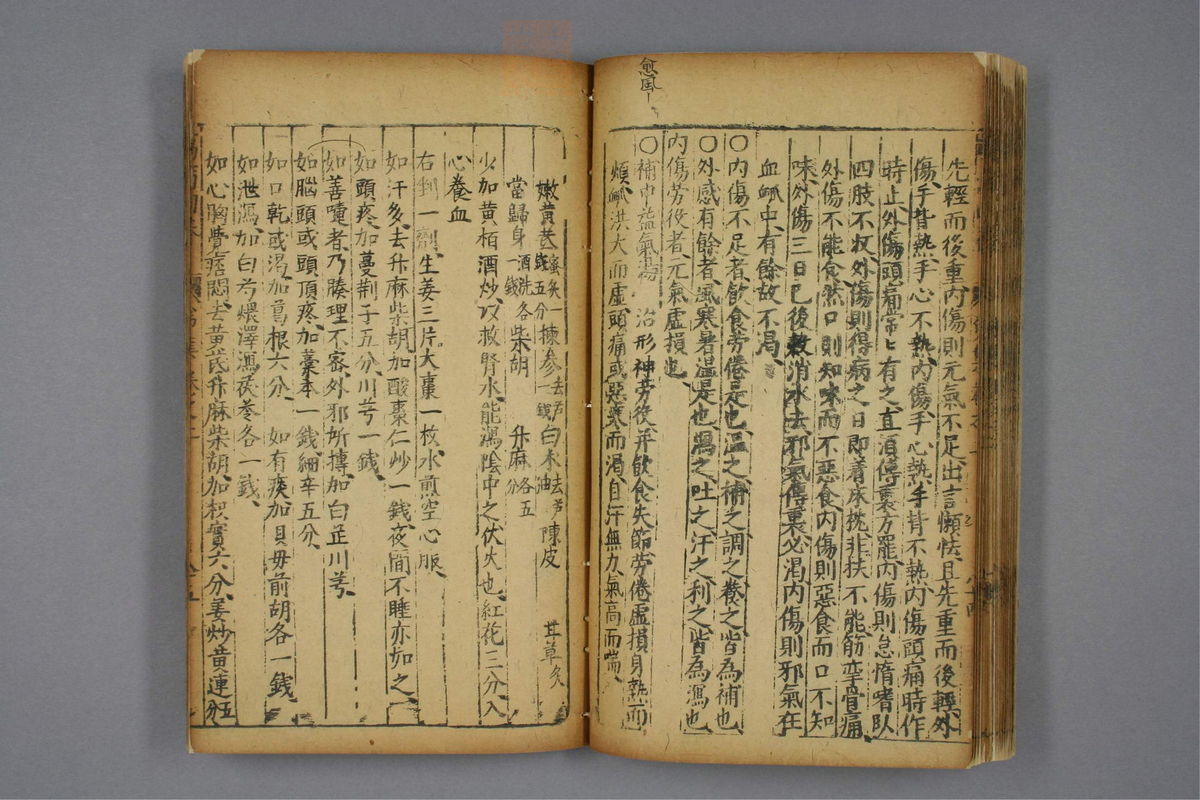 愈風
先輕而後重內傷則元氣不足出言懶怯且先重而後輕外
傷手背熱手心不熱內傷手心熱手背不熱內傷頭痛時作
時止外傷頭痛常〻有之直泊傳裏方罷內傷則怠惰嗜臥
四肢不收外傷則得病之日即着床枕非扶不能筋挛骨痛
外傷不能食然口則知味而不惡食內傷則惡食而口不知
味外傷三日已後穀消水去邪氣傳裏必渴內傷則邪氣在
血脉中有餘故不渴
〇內傷不足者飲食劳倦是也温之補之調之養之皆為補也
〇外感有餘者風寒暑溫是也瀉之吐之汗之利之皆為瀉也
內傷劳役者元氣虛損也
〇補中益氣湯 治形神劳役并飲食失節劳倦虛損身熱而
煩脉洪大而虛頭痛或惡寒而渴自汗無力氣高而喘
嫩黄芪蜜炙一錢五分 揀參去芦一錢 白术去芦油 陳皮 甘草炙
當歸身酒洗各一錢 柴胡 升麻各五分
少加黄栢酒炒以救腎水能瀉陰中之伏火也紅花三分入
心養血
右剉一劑生姜三片大棗一枚水煎空心服
如汗多去升麻柴胡加酸棗仁炒一錢夜間不睡亦如之
如頭疼加蔓荆子五分川芎一錢
如善嚏者乃腠理不密外邪所搏加白芷川芎
如腦頭或頭頂疼加藁本一錢細辛五分
如口乾或渴加葛根六分 如有痰加貝毋前胡各一錢
如泄瀉加白芍煨澤瀉茯苓各一錢
如心胸覺痞悶去黄芪升麻柴胡加枳實六分姜炒黄連五分